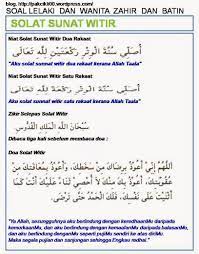 blog. http://pakcikli00.wordpress.com/
SOAL LELAKI DAN WANITA ZAHIR DAN BATIN
SOLAT SUNAT WITIR
Niat Solat Sunat Witir Dua Rakaat
أُصَلِّي سُنَّةَ الْوِتْرِ رَكْعَتَيْنِ لِلّٰهِ تَعَالَى
"Aku solat sunnat witir dua rakaat kerana Allah Taala"
Niat Solat Sunat Witir Satu Rakaat
أُصَلِّي سُنَّةَ الْوِتْرِ رَكْعَةً لِلّٰهِ تَعَالَى
"Aku solat sunnat witir satu rakaat kerana Allah Taala"
Zikir Selepas Solat Witir
سُبْحَانَ الْمَلِكِ الْقُدُّوسِ
Dibaca tiga kali sebelum membaca doa :
Doa Solat Witir
اللَّهُمَّ إِنِّي أَعُوذُ بِرِضَاكَ مِنْ سَخَطِكَ، وَأَعُوذُ بِمُعَافَاتِكَ مِنْ
عُقُوبَتِكَ، وَأَعُوذُ بِكَ مِنْكَ لَا أُحْصِي ثَنَاءً عَلَيْكَ أَنْتَ كَمَا
أَثْنَيْتَ عَلَى نَفْسِكَ، فَلَكَ الْحَمْدُ حَتَّى تَرْضَى
"Ya Allah, sesungguhnya aku berlindung dengan keredhaanMu daripada
kemurkaanMu, dan aku berlindung dengan kemaafanMu daripada balasanMu,
dan aku berlindung denganMu
Maka segala pujian dan sanjungan sehingga Engkau redhai."